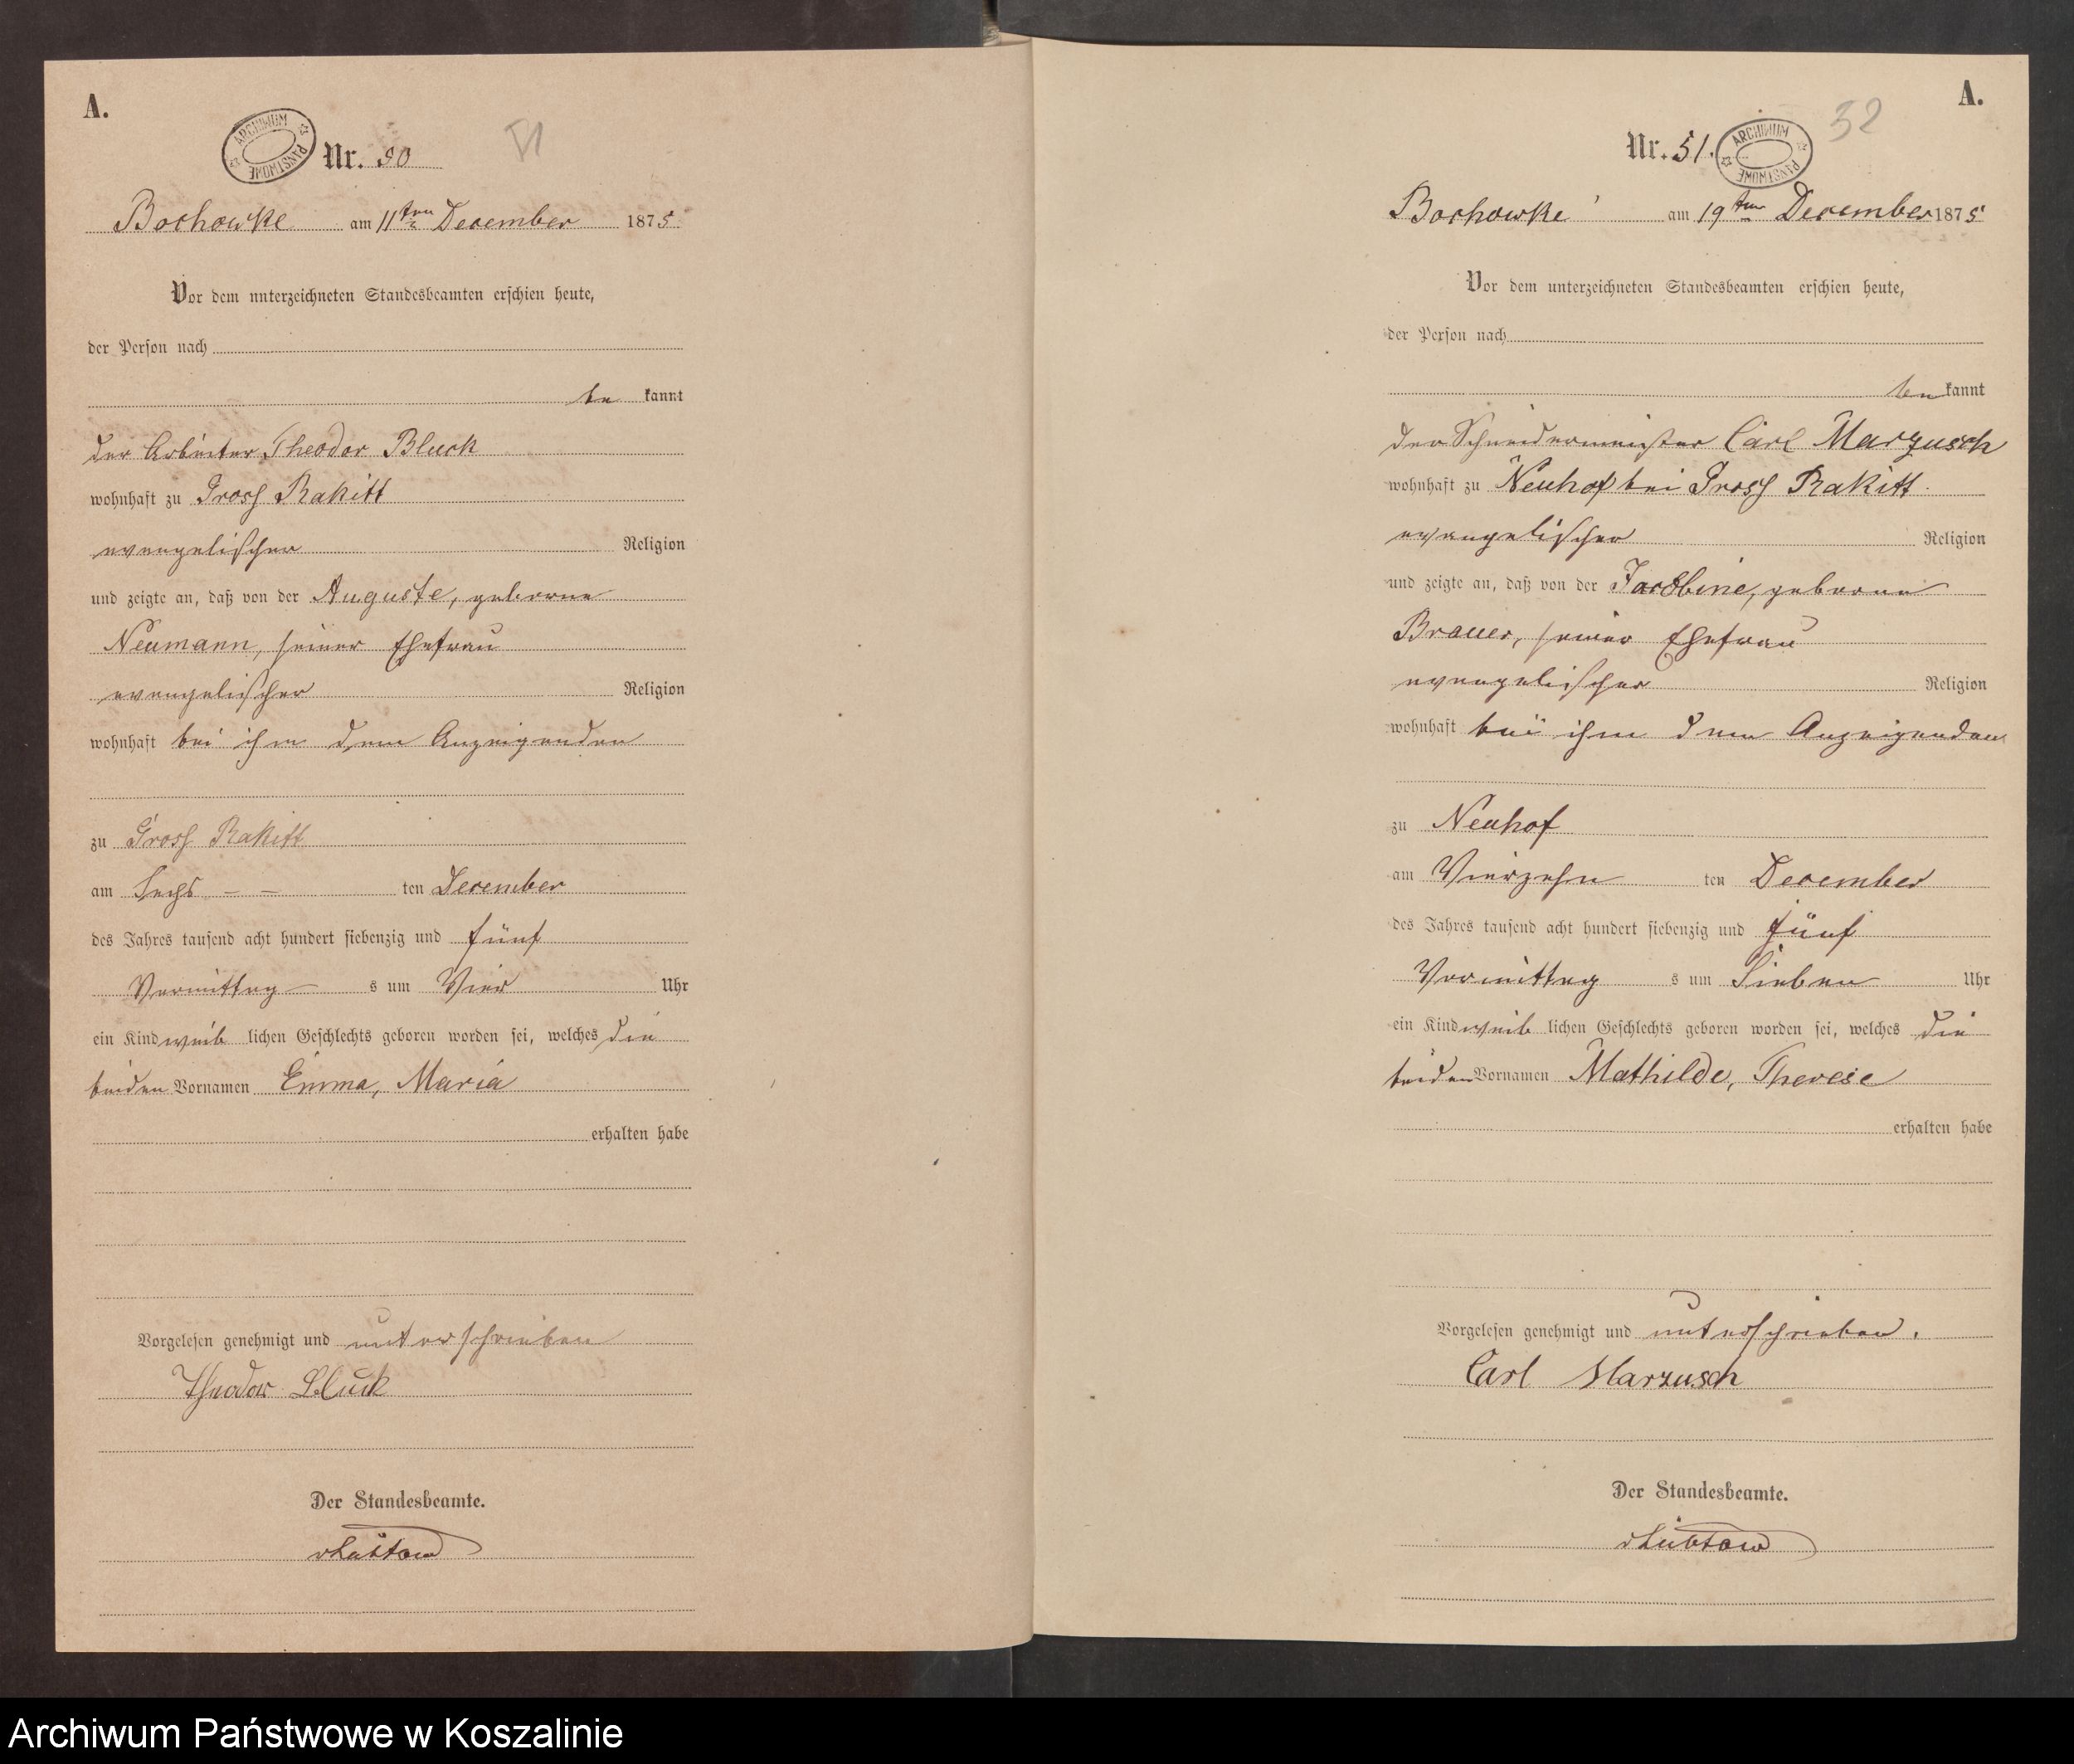 A.
ARCHIWUM PAŃSTWOWE
Nr. 50
Bochowke am 11ten December 1875.
Vor dem unterzeichneten Standesbeamten erschien heute,
der Person nach
be kannt
der Arbeiter Theodor Bluck
wohnhaft zu Gross Rakitt
evangelischer Religion
und zeigte an, daß von der Auguste, geborene
Neumann, seiner Ehefrau
evangelischer Religion
wohnhaft bei ihm dem Anzeigenden
zu Gross Rakitt
am Sechs – – ten December
des Jahres tausend acht hundert siebenzig und fünf
Vormittag – s um Vier Uhr
ein Kind weib lichen Geschlechts geboren worden sei, welches die
beiden Vornamen Emma, Maria
erhalten habe
Vorgelesen genehmigt und unterschrieben
Theodor Bluck
Der Standesbeamte.
A.
32
Nr. 51.
ARCHIWUM PAŃSTWOWE
Bochowke am 19ten December 1875
Vor dem unterzeichneten Standesbeamten erschien heute,
der Person nach
be kannt
der Schneidermeister Carl Marzusch
wohnhaft zu Neuhof bei Gross Rakitt
evangelischer Religion
und zeigte an, daß von der geborene
Brauer, seiner Ehefrau
evangelischer Religion
wohnhaft bei ihm dem Anzeigenden
zu Neuhof
am Vierzehn ten December
des Jahres tausend acht hundert siebenzig und fünf
Vormittag s um Sieben Uhr
ein Kind weib lichen Geschlechts geboren worden sei, welches die
beiden Vornamen Mathilde, Therese
erhalten habe
Vorgelesen genehmigt und unterschrieben.
Carl Marzusch
Der Standesbeamte.
Archiwum Państwowe w Koszalinie